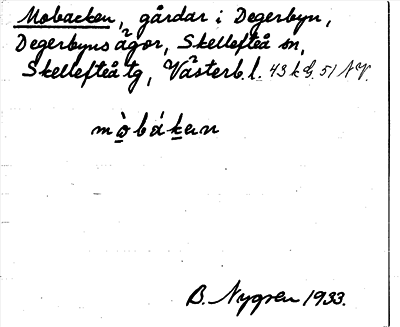 Mobacken, gårdar i Degerbyn,
Degerbyns ägor, Skellefteå sn,
Skellefteå tg, Västerb. l. 43 k 51
mòbákan
B. Nygren 1933.